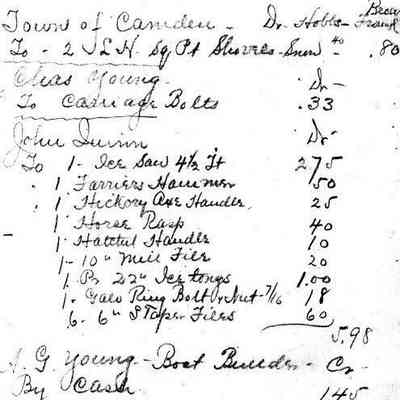 Town of Camden - Dr. Hobbs - Frank
To - 2 S L H. Sq Pt Shovels - Snow - 40 .80
Chas Young - Dr -
To Carriage Bolts .33
John Quinn Dr -
To 1 - Ice Saw 4½ Ft 2 75
" 1 Farriers Hammer 50
" 1 Hickory Axe Handle 25
1 Horse Rasp 40
1 Hatchet Handle 10
1 - 10" Mill File 20
1 Pr 22" Ice tongs 1.00
1 - Galv Ring Bolt & Nut - 7/16 18
6 - 6" S Taper Files 60
5.98
G. Young - Boat Builder - Cr -
By Cash 145